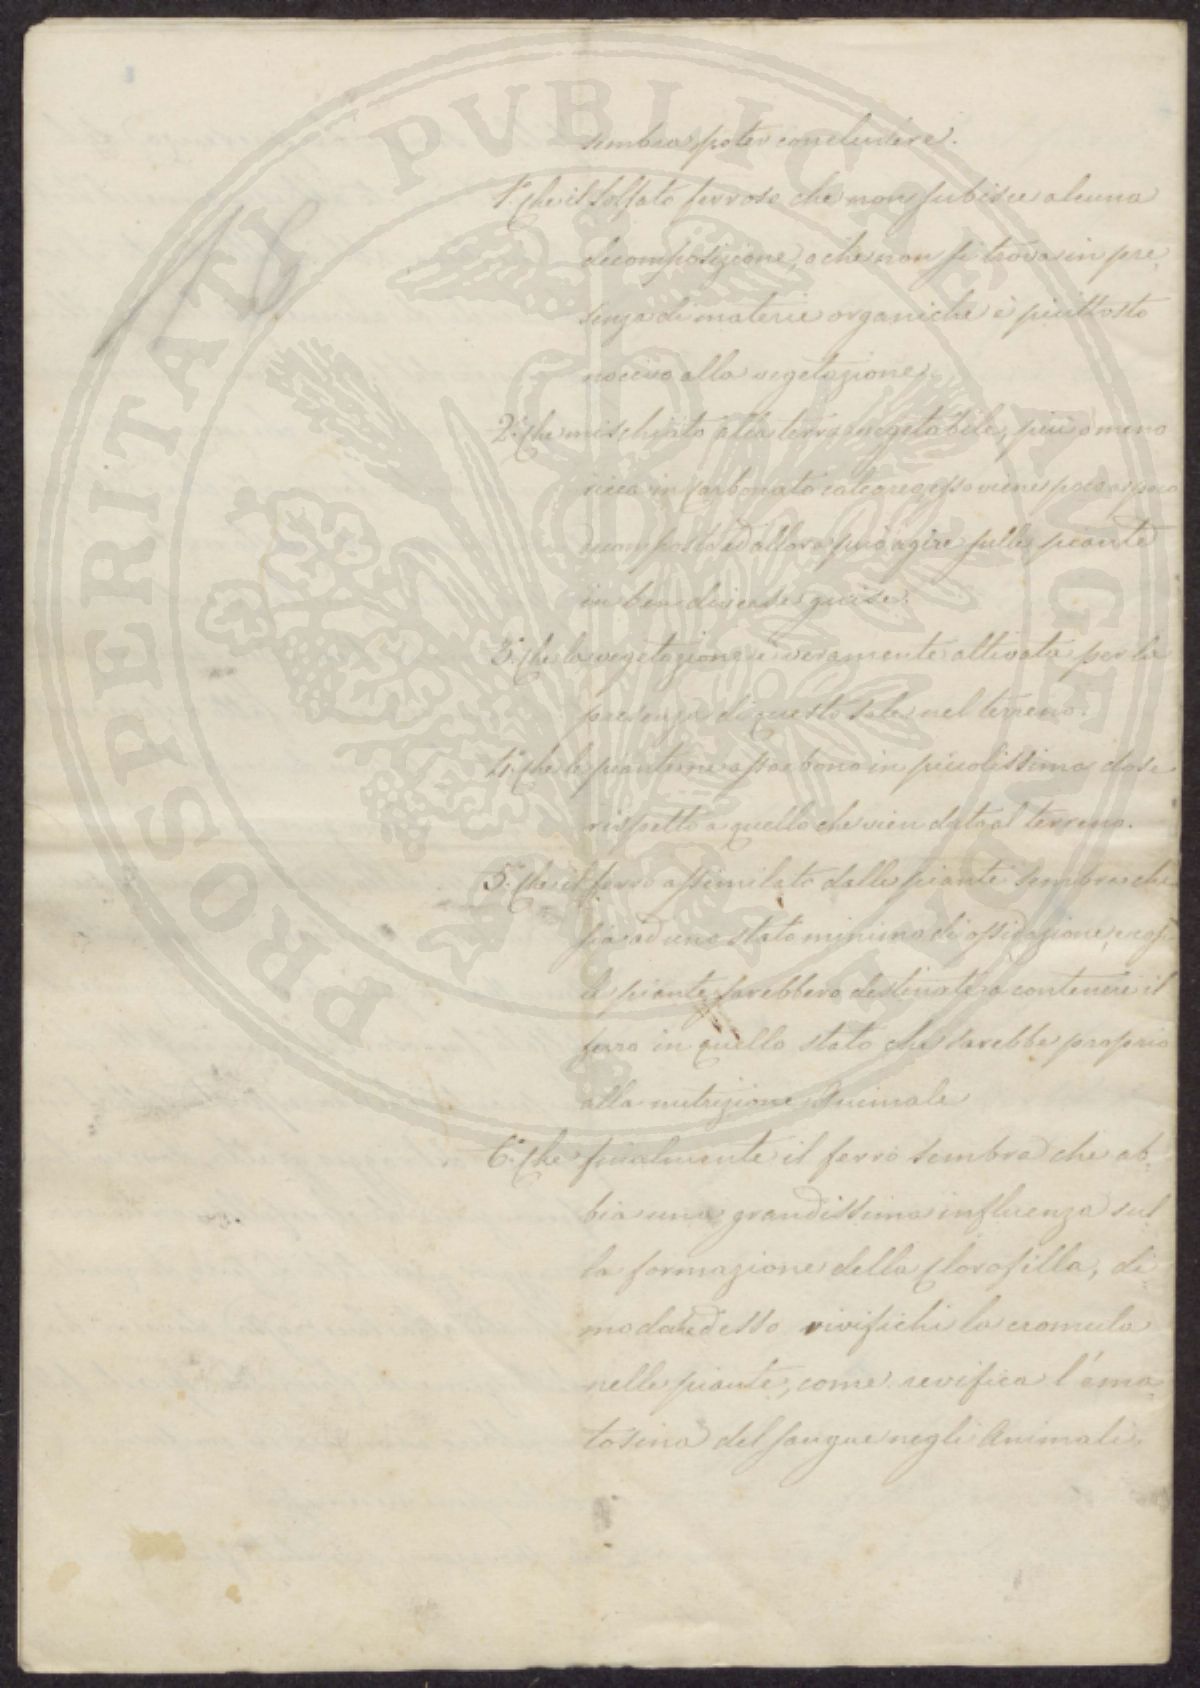 sembra poter concludere.
1.° Che il Solfato ferroso che non subisce alcuna
decomposizione, o che non si trova in pre-
senza di materie organiche è piuttosto
nocivo alla vegetazione.
2.° Che mischiato alla terra vegetabile, più o meno
ricca in Carbonato calcareo esso viene poco a poco
decomposto ed allora può agire sulle piante
in ben diverse guise.
3.° Che la vegetazione è veramente attivata per la
presenza di questo Sale nel terreno.
4.° Che le piante ne assorbono in piccolissima dose
rispetto a quello che vien dato al terreno.
5.° Che il ferro assimilato dalle piante sembra che
sia ad uno stato minimo di ossidazione, e così
le piante sarebbero destinate a contenere il
ferro in quello stato che sarebbe proprio
alla nutrizione Animale
6.° Che finalmente il ferro sembra che ab-
bia una grandissima influenza sul-
la formazione della Clorofilla, di
modo ed esso vivifichi la cromula
nelle piante, come revifica l'ema-
tosina del sangue negli Animali.
18
PROSPERITATI PVBLICAE AVGENDAE